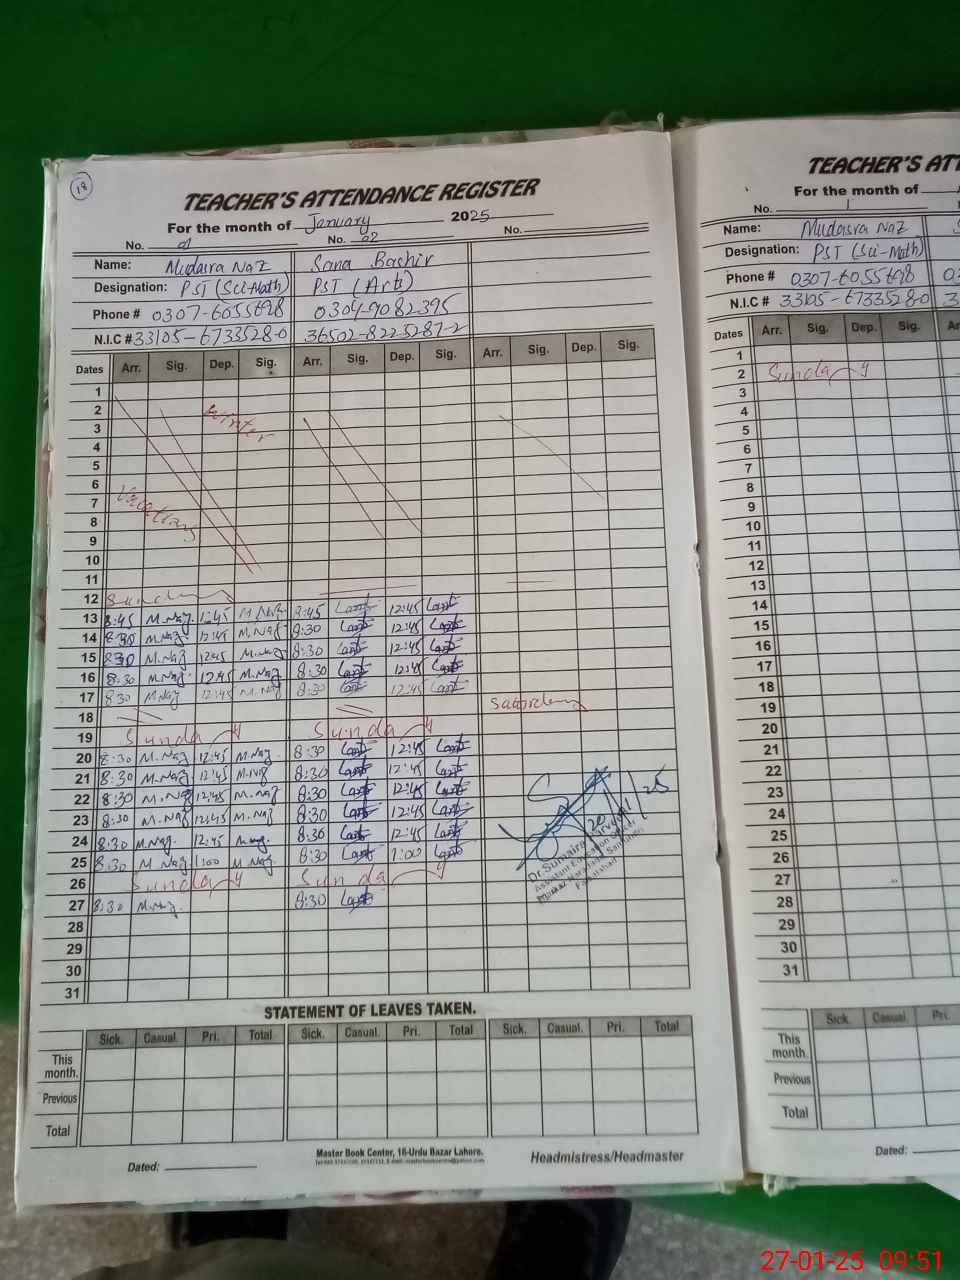 18
TEACHER'S ATTENDANCE REGISTER
For the month of January 2025
No. 01 No. 02 No.
Name: Mudasra Naz Sana Bashir
Designation: PST (Sci-Math) PST (Arts)
Phone # 0307-6055698 0304-9082395
N.I.C # 33105-6733528-0 36502-8225287-2
Dates Arr. Sig. Dep. Sig. Arr. Sig. Dep. Sig. Arr. Sig. Dep. Sig.
1
2 winter
3
4
5
6
7 Vacations
8
9
10
11
12 Sunday
13 8:45 M.Naz. 12:45 M.Naz. 8:45 12:45
14 8:30 M.Naz. 12:45 M.Naz 8:30 12:45
15 8:30 M.Naz 12:45 M.Naz 8:30 12:45
16 8:30 M.Naz. 12:45 M.Naz 8:30 12:45
17 8:30 M.Naz 12:45 M.Naz 8:30 12:45
18 Saturday
19 Sunday Sunday
20 8:30 M.Naz 12:45 M.Naz 8:30 12:45
21 8:30 M.Naz 12:45 M.Naz 8:30 12:45
22 8:30 M.Naz 12:45 M.Naz 8:30 12:45
23 8:30 M.Naz 12:45 M.Naz 8:30 12:45
24 8:30 M.Naz. 12:45 M.Naz. 8:30 12:45
25 8:30 M.Naz 1:00 M.Naz. 8:30 1:00
26 Sunday Sunday
27 8:30 M.Naz. 8:30
28
29
30
31
Dr. Sumaira
Assistant Education
STATEMENT OF LEAVES TAKEN.
Sick. Casual. Pri. Total Sick. Casual. Pri. Total Sick. Casual. Pri. Total
This month.
Previous
Total
Master Book Center, 16-Urdu Bazar Lahore.
Dated: Headmistress/Headmaster
TEACHER'S ATT
For the month of
No. 1
Name: Mudasra Naz S
Designation: PST (Sci-Math)
Phone # 0307-6055698 03
N.I.C # 33105-6733528-0 3
Dates Arr. Sig. Dep. Sig. Ar
1
2 Sunday
3
4
5
6
7
8
9
10
11
12
13
14
15
16
17
18
19
20
21
22
23
24
25
26
27
28
29
30
31
Sick. Casual. Pri.
This month.
Previous
Total
Dated:
27-01-25 09:51